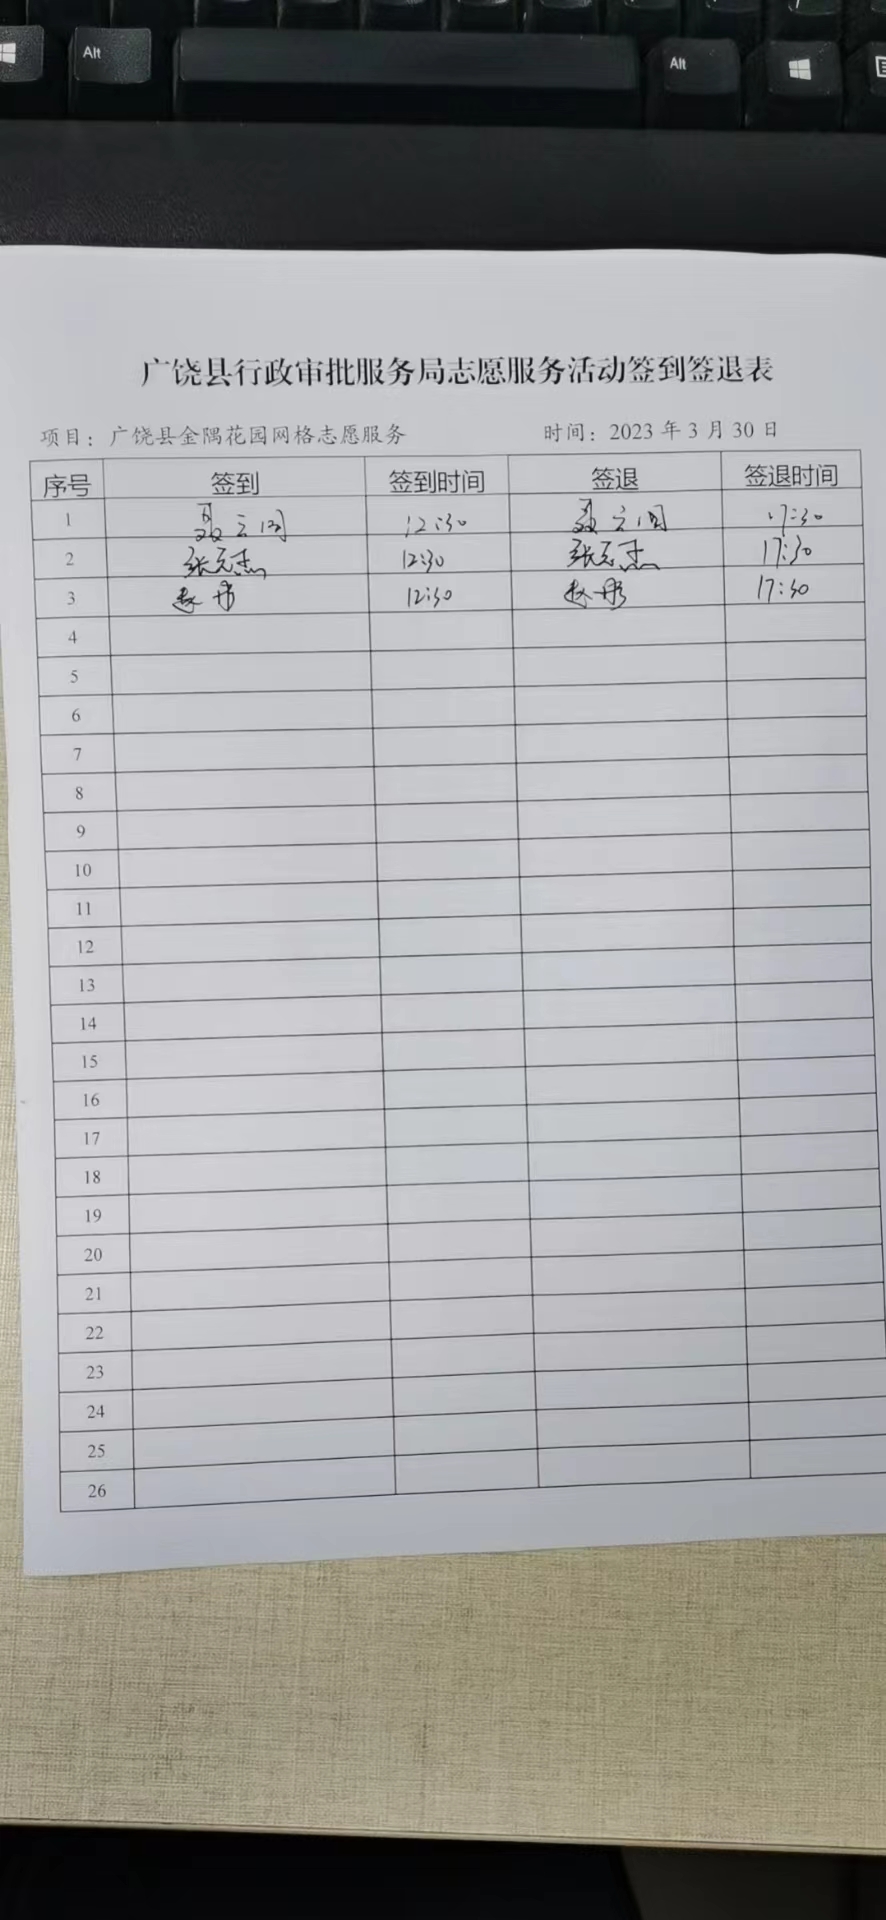 Alt Alt
广饶县行政审批服务局志愿服务活动签到签退表
项目：广饶县金隅花园网格志愿服务 时间：2023 年 3 月 30 日
序号 签到 签到时间 签退 签退时间
1 聂立国 12:30 聂立国 17:30
2 张元杰 12:30 张元杰 17:30
3 赵 12:30 赵 17:30
4
5
6
7
8
9
10
11
12
13
14
15
16
17
18
19
20
21
22
23
24
25
26